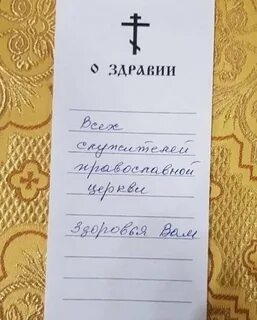 О ЗДРАВИИ
Всех
служителей
православной
церкви
Здоровья Вам